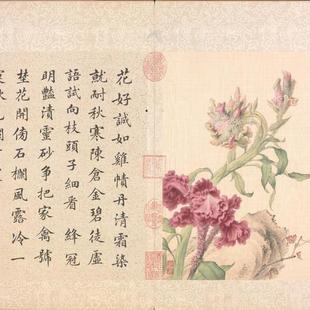 花好誠如雞幘丹清霜染
就耐秋寒陳倉金碧徒虛
語試向枝頭子細看 絳冠
明豔漬靈砂爭把家禽號
埜花開傍石欄風露冷一